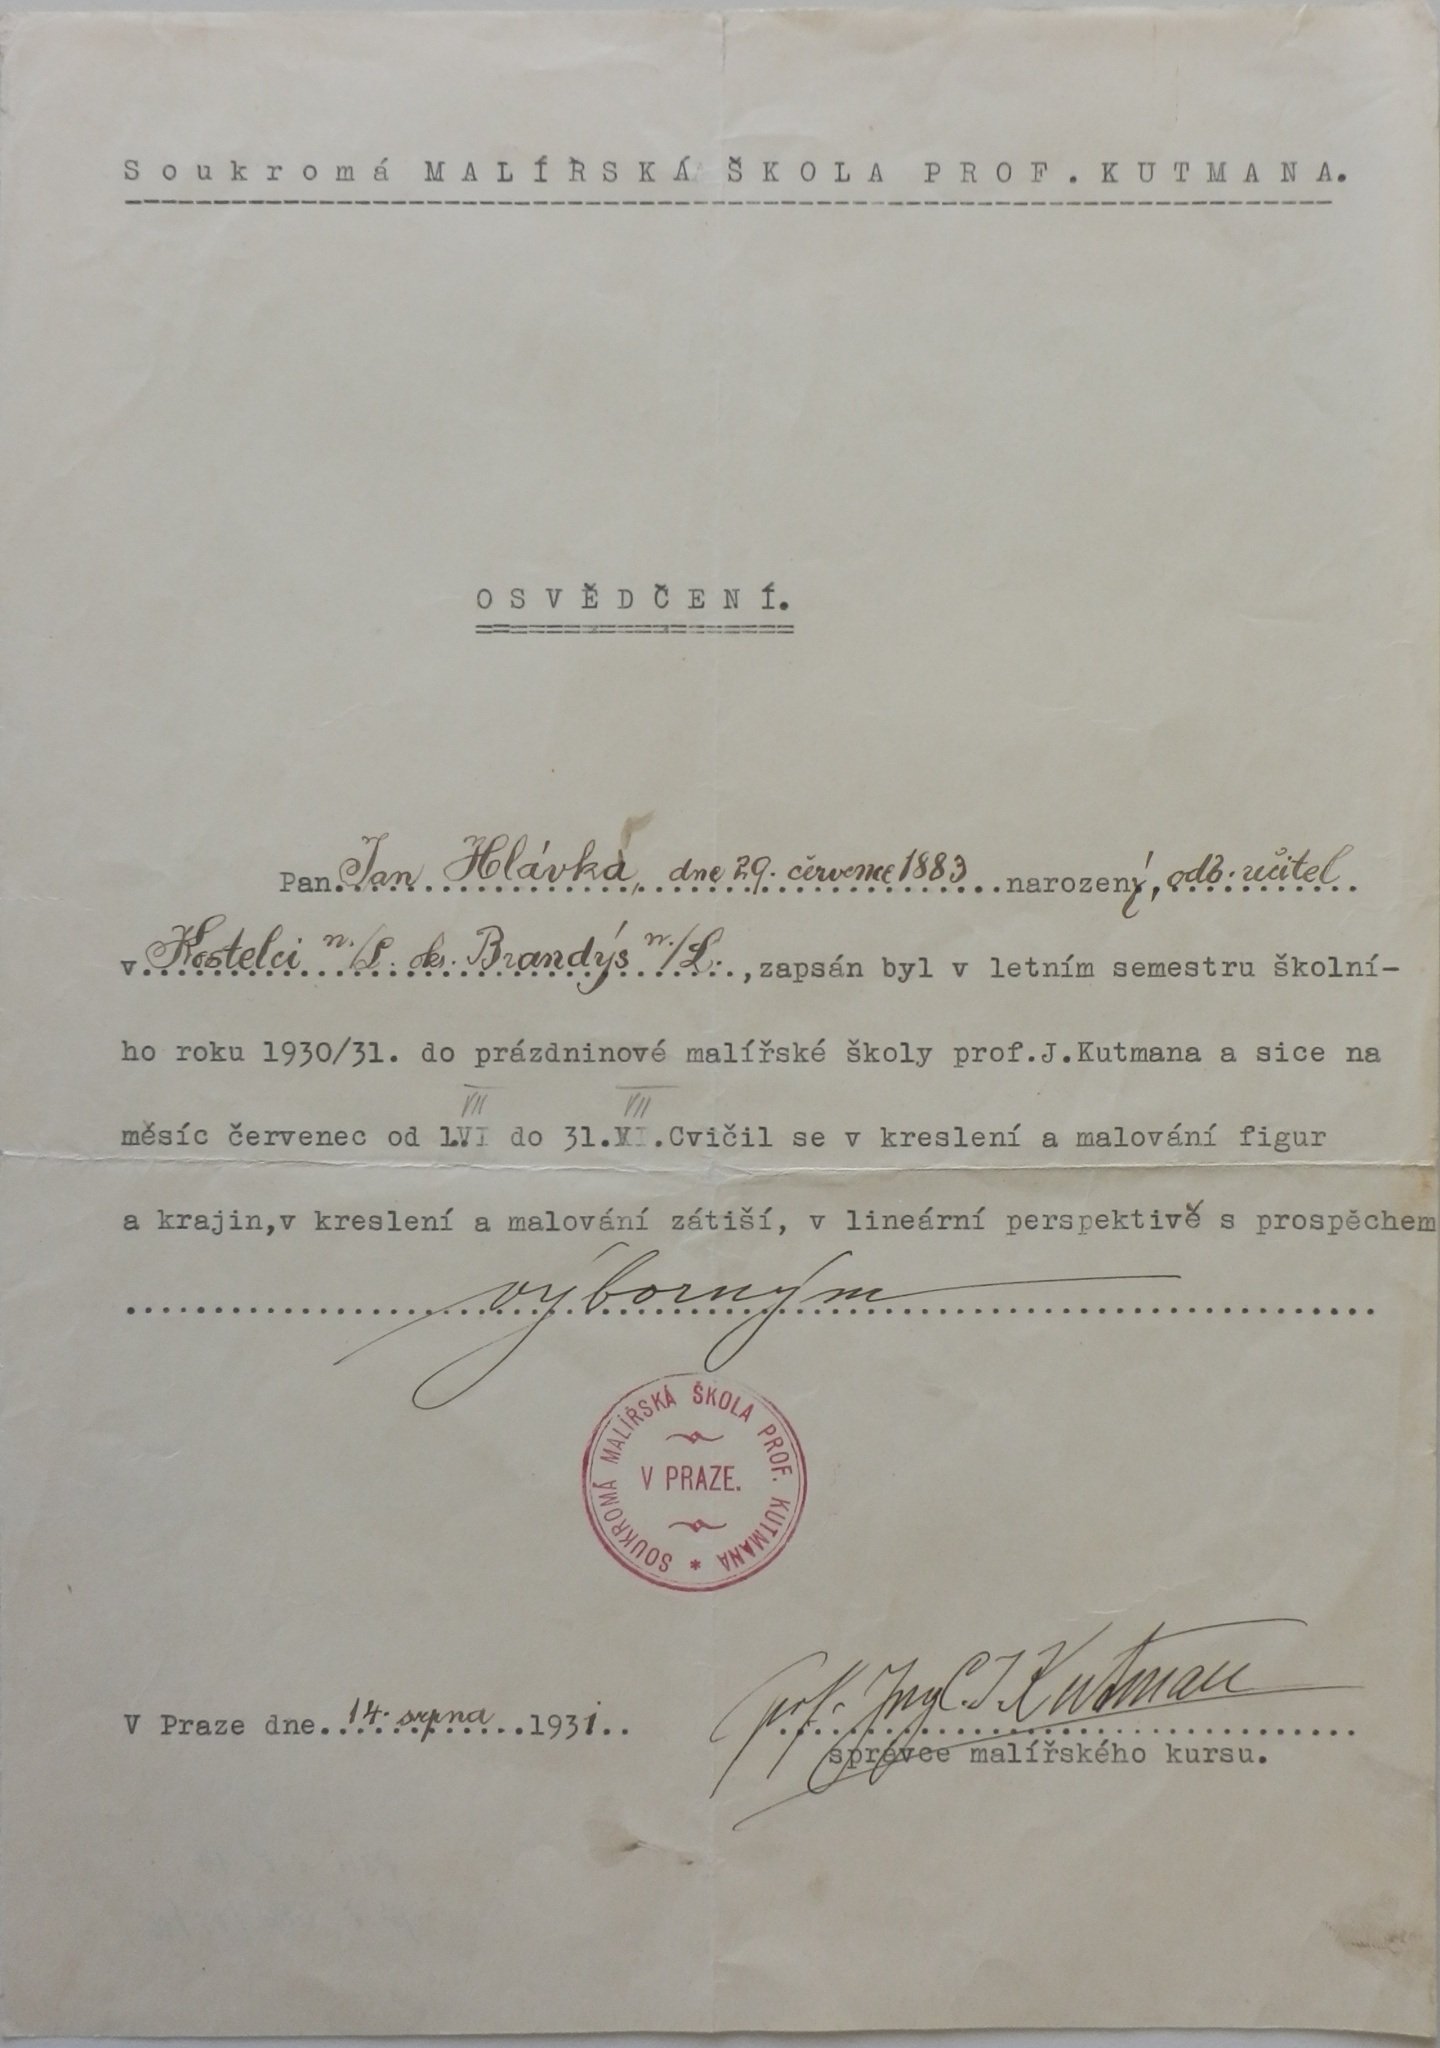 Soukromá MALÍŘSKÁ ŠKOLA PROF. KUTMANA.
OSVĚDČENÍ.
Pan Jan Hlávka, dne 29. července 1883 narozený, odb. učitel
v Kostelci n./L. okr. Brandýs n./L., zapsán byl v letním semestru školní-
ho roku 1930/31. do prázdninové malířské školy prof.J.Kutmana a sice na
VII VII
měsíc červenec od 1.VI do 31.VI.Cvičil se v kreslení a malování figur
a krajin,v kreslení a malování zátiší, v lineární perspektivě s prospěchem
výborným
SOUKROMÁ MALÍŘSKÁ ŠKOLA PROF. KUTMANA *
V PRAZE.
V Praze dne 14. srpna 1931..
prof. Ing C. J. Kutman
správce malířského kursu.